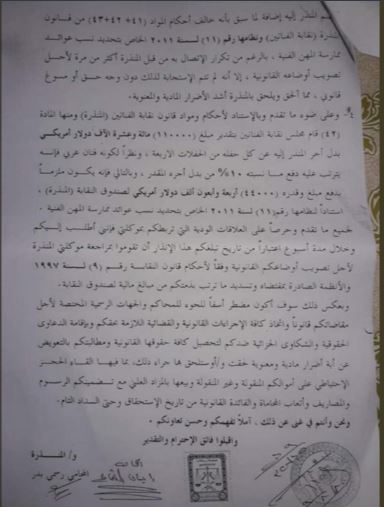 المنذر إليه إضافة لما سبق بأنه خالف أحكام المواد (٤١+ ٤٢+ ٤٣) من قانون
المنذرة (نقابة الفنانين) ونظامها رقم (١١) لسنة ٢٠١١ الخاص بتحديد نسب عوائد
ممارسة المهن الفنية ، بالرغم من تكرار الإتصال به من قبل المنذرة أكثر من مرة لأجل
تصويب أوضاعه القانونية ، إلا أنه لم تتم الإستجابة لذلك دون وجه حق أو مسوغ
قانوني ، مما ألحق ويلحق بالمنذرة أشد الأضرار المادية والمعنوية.
٤. وعلى ضوء ما تقدم وبالإستناد لأحكام ومواد قانون نقابة الفنانين (المنذرة) ومنها المادة
(٤٢) قام مجلس نقابة الفنانين بتقدير مبلغ (١١٠٠٠٠) مائة وعشرة الآف دولار أمريكي
بدل أجر المنذر إليه عن كل حفله من الحفلات الاربعة ، ونظراً لكونه فنان عربي فإنه
يترتب عليه دفع ما نسبته ١٠% من بدل أجره المقدر ، وبالتالي فإنه يكون ملزماً
بدفع مبلغ وقدره (٤٤٠٠٠) أربعة وأربعون ألف دولار أمريكي لصندوق النقابة (المنذرة) ،
استناداً لنظامها رقم (١١) لسنة ٢٠١١ الخاص بتحديد نسب عوائد ممارسة المهن الفنية .
لجميع ما تقدم وحرصاً على العلاقات الودية التي تربطكم بموكلتي فإنني أطلب إليكم
وخلال مدة أسبوع اعتباراً من تاريخ تبلغكم هذا الإنذار أن تقوموا بمراجعة موكلتي المنذرة
لأجل تصويب أوضاعكم القانونية وفقاً لأحكام قانون النقابة رقم (٩) لسنة ١٩٩٧
والأنظمة الصادرة بمقتضاه وتسديد ما ترتب بذمتكم من مبالغ مالية لصندوق النقابة .
وبعكس ذلك سوف أكون مضطر آسفاً للجوء للمحاكم والجهات الرسمية المختصة لأجل
مقاضاتكم قانوناً واتخاذ كافة الإجراءات القانونية والقضائية اللازمة بحقكم وبإقامة الدعاوى
الحقوقية والشكاوى الجزائية ضدكم لتحصيل كافة حقوقها القانونية ومطالبتكم بالتعويض
عن أية أضرار مادية ومعنوية لحقت و/أو ستلحق بها جراء ذلك، بما فيها القاء الحجز
الإحتياطي على أموالكم المنقولة وغير المنقولة وبيعها بالمزاد العلني مع تضمينكم الرسوم
والمصاريف وأتعاب المحاماة والفائدة القانونية من تاريخ الإستحقاق وحتى السداد التام .
ونحن وأنتم في غنى عن ذلك ، آملاً تفهمكم وحسن تعاونكم .
واقبلوا فائق الإحترام والتقدير
و/ المنذرة
المحامي رسمي بدر